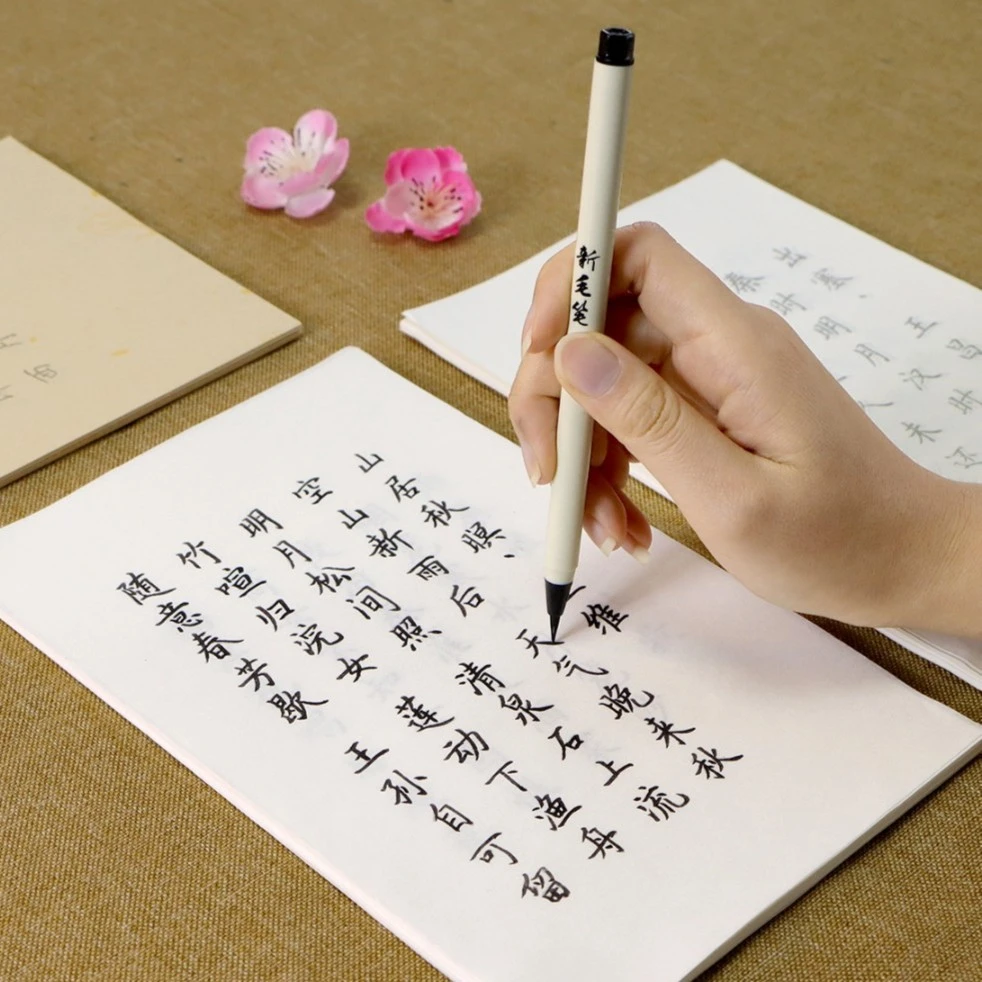 山居秋暝、 维
空山新雨后 天气晚来秋
明月松间照 清泉石上流
竹喧归浣女 莲动下渔舟
随意春芳歇 王孙自可留
新毛笔
出塞、 王昌
秦时明月 汉时
未还